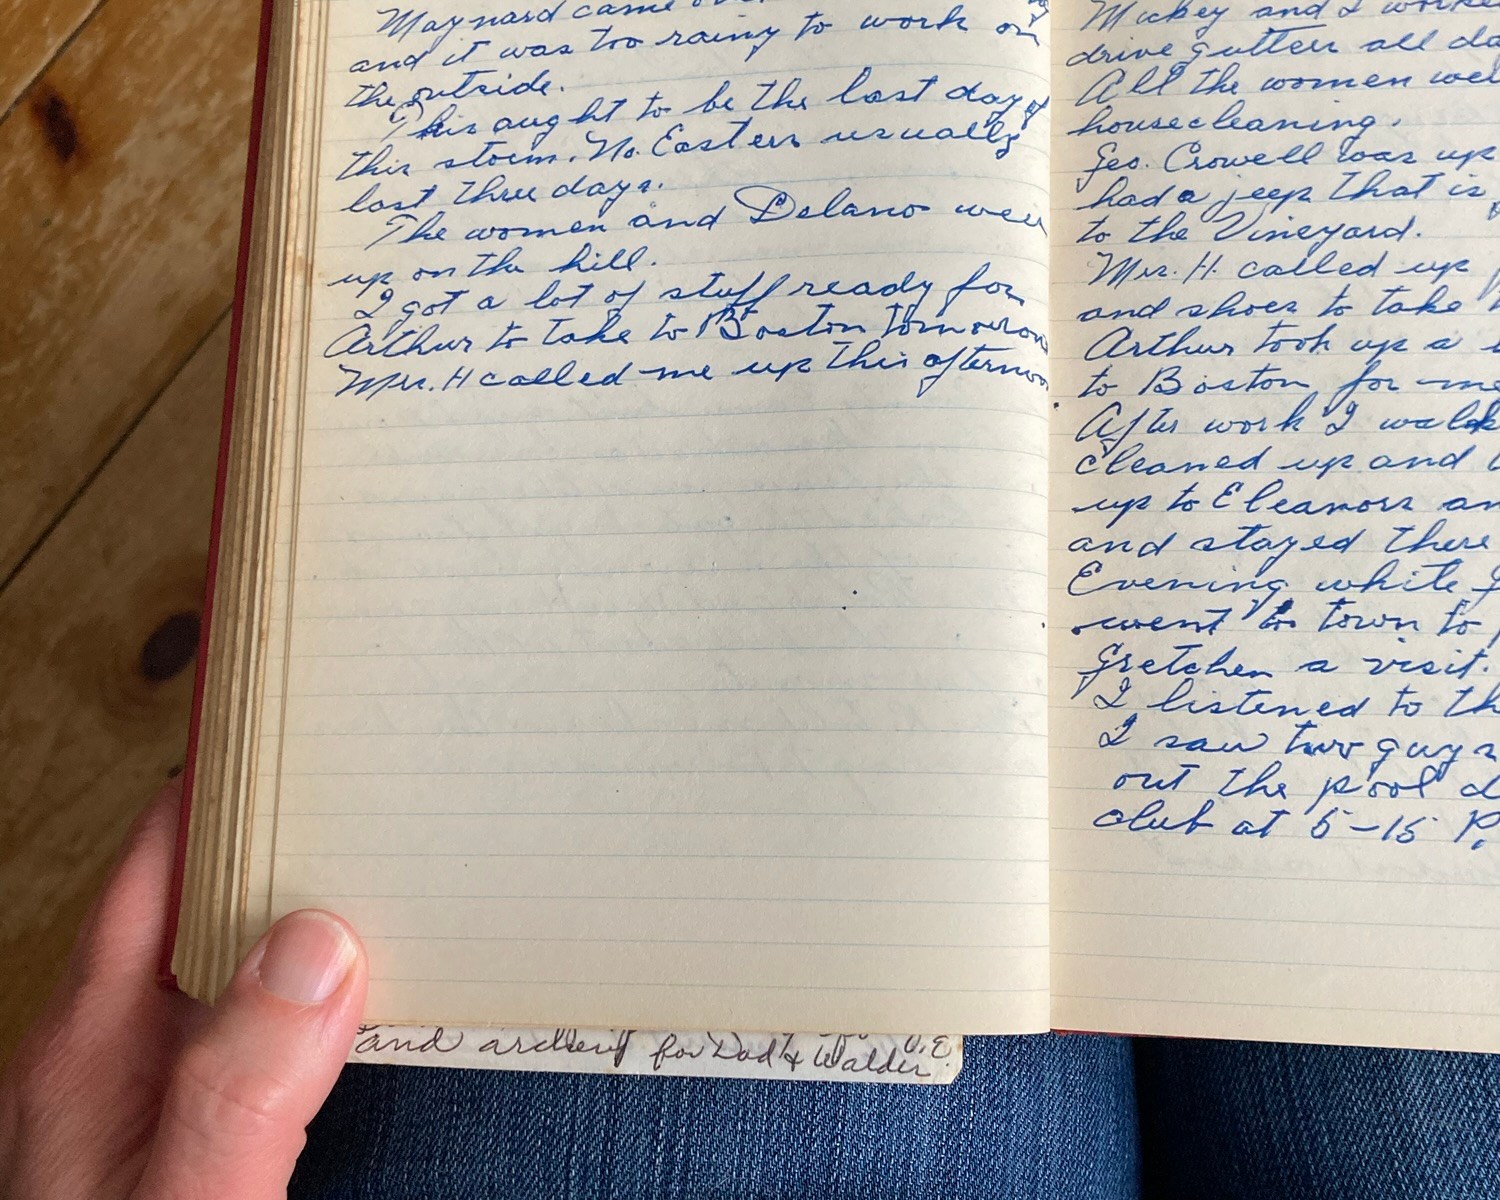 Maynard came over
and it was too rainy to work on
the outside.
This aught to be the last day of
this storm. No. Easters usually
last three days.
The women and Delano were
up on the hill.
I got a lot of stuff ready for
Arthur to take to Boston tomorrow
Mrs. H called me up this afternoon
Mickey and I worke
drive gutters all da
All the women we
housecleaning.
Geo. Crowell was up
had a jeep that is
to the Vineyard.
Mrs. H. called up
and shoes to take
Arthur took up a
to Boston for me
After work I walk
cleaned up and
up to Eleanors an
and stayed there
Evening white
went to town to
Gretchen a visit.
I listened to th
I saw two guys
out the pool
club at 5-15 P.
and for Dad & Walder